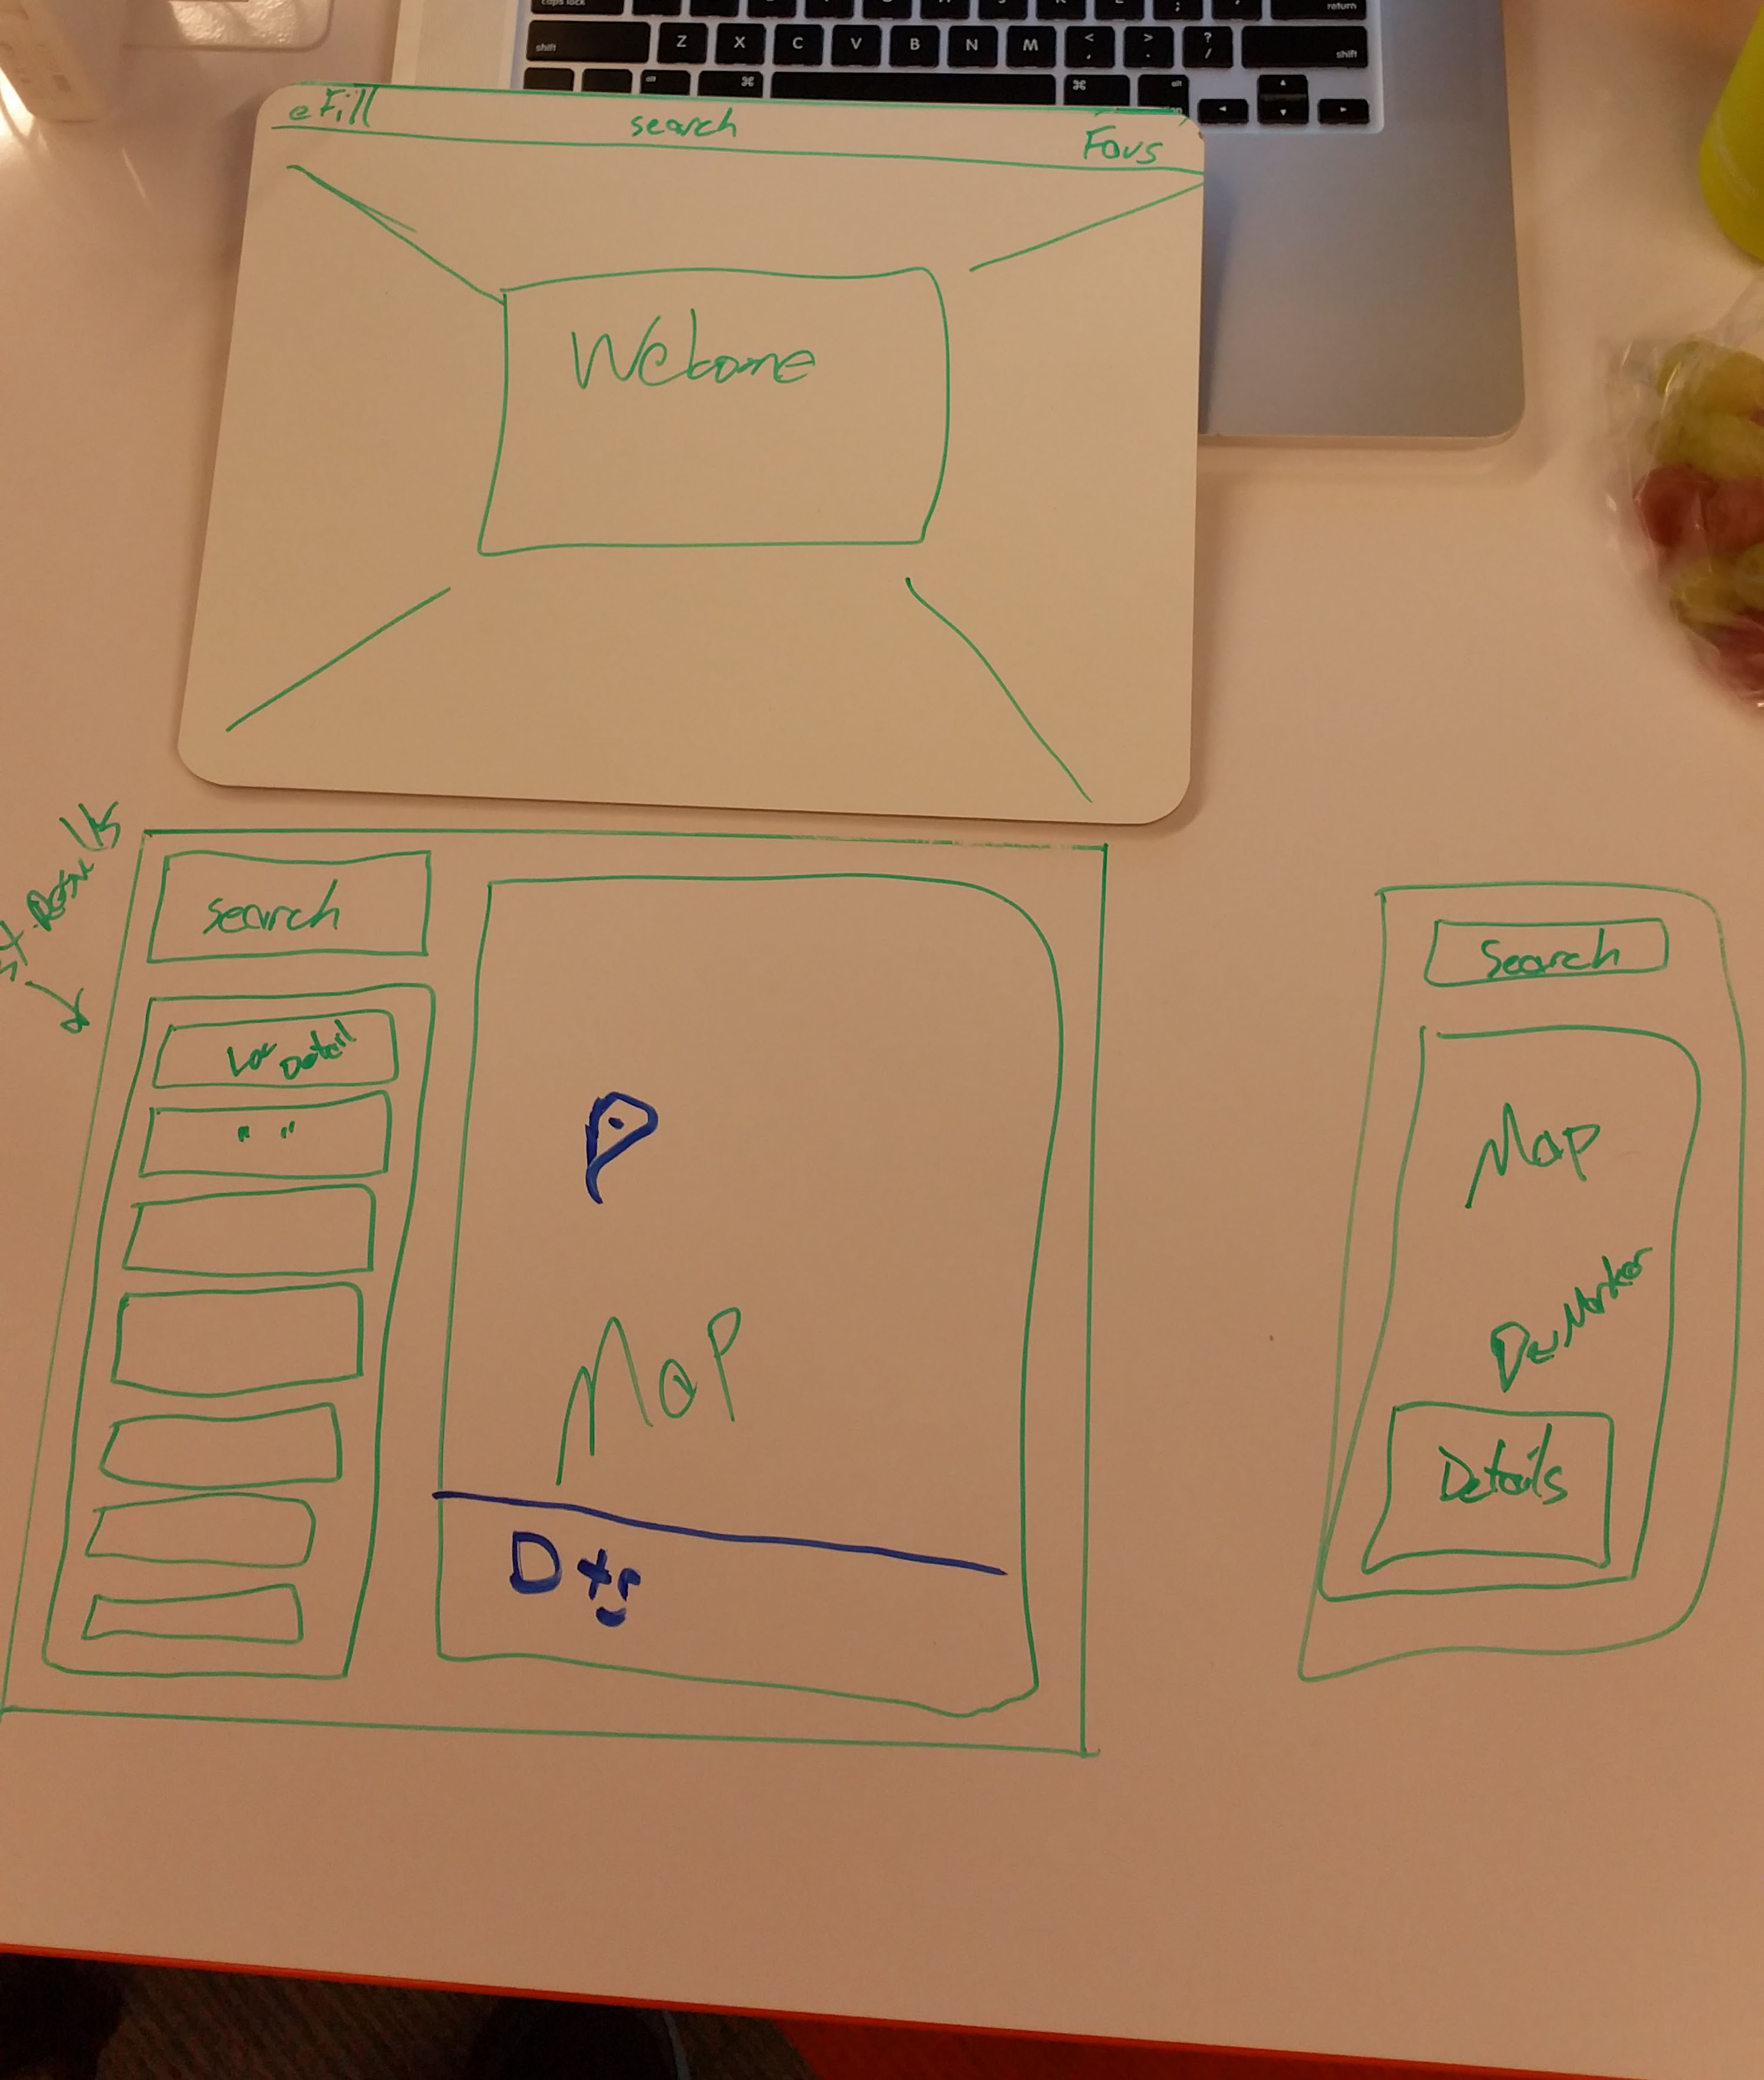 caps lock
return
shift
Z X C V B N M < , > . ? /
shift
alt ⌘ ⌘ alt
eFill search Favs
Welcome
search
Loc Detail
" "
Map
Search
Map
Marker
Details